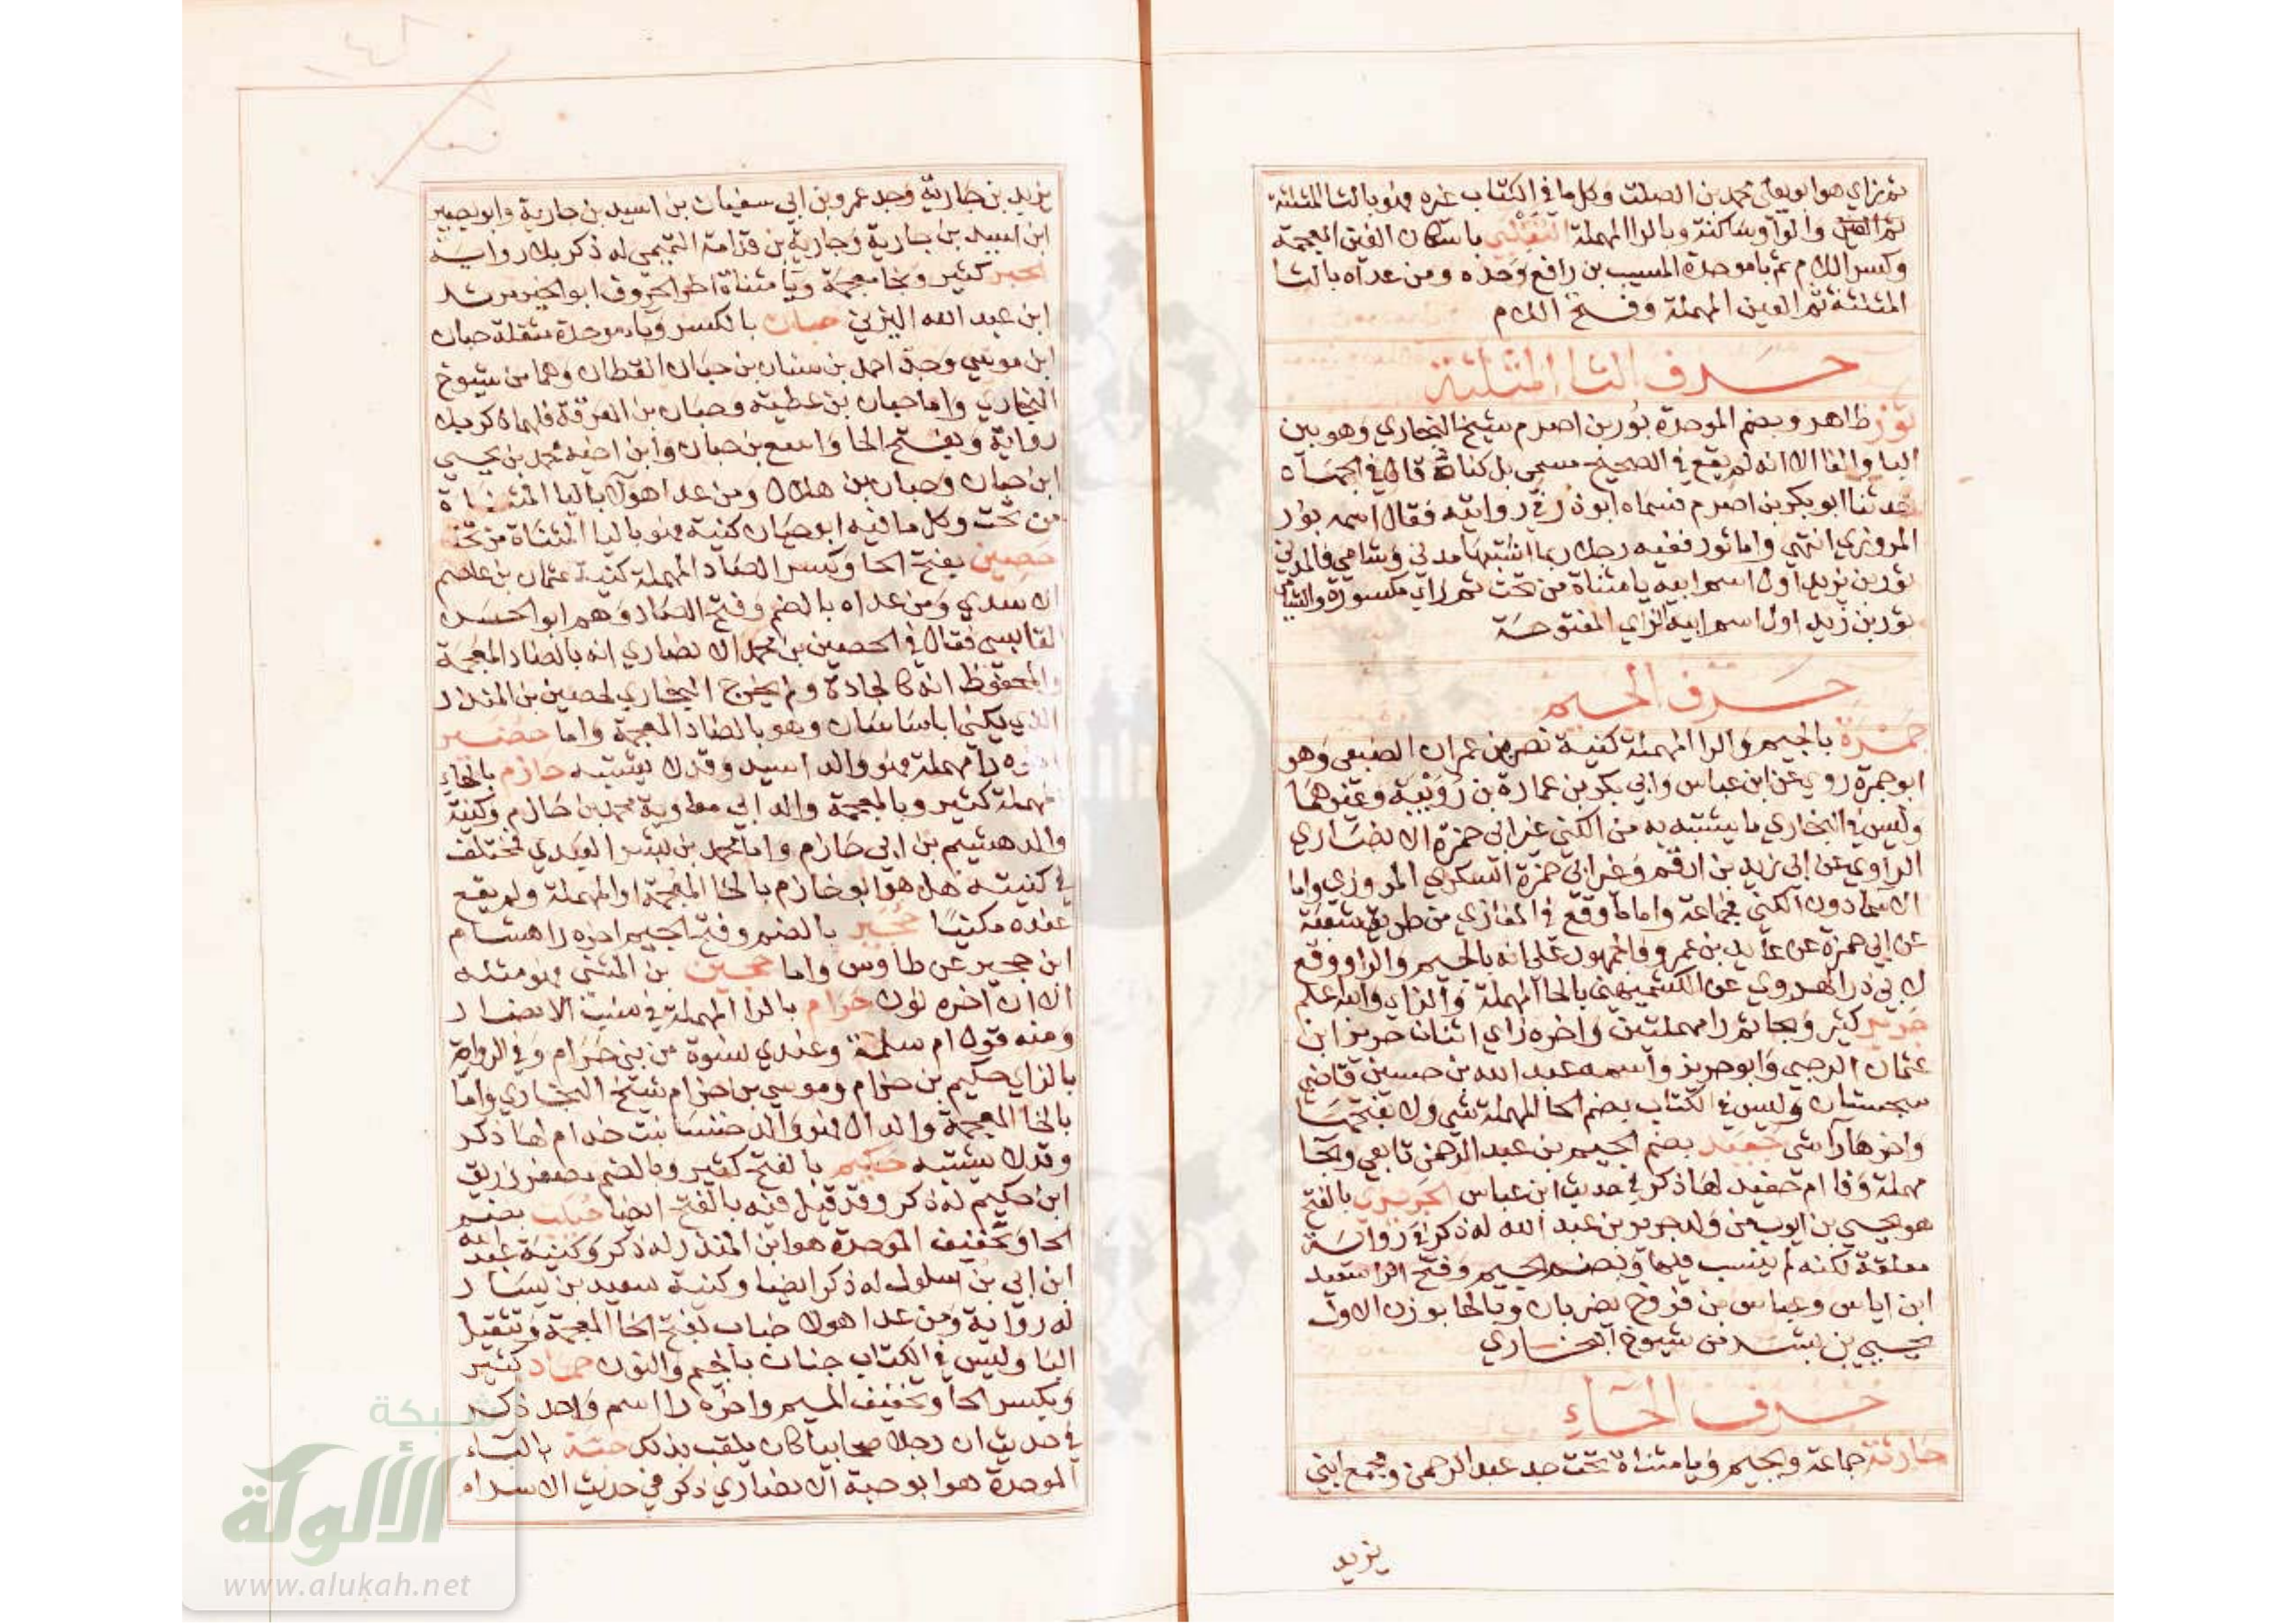 ثم زاي هو ابو يعلى محمد بن الصلت وكل ما في الكتاب غيره فهو بالثا المثلثة
ثم العين والواو ساكنة وبالرا المهملة التغلبي باسكان الغين المعجمة
وكسر اللام ثم با موحدة المسيب بن رافع وحده ومن عداه بالثا
المثلثة ثم العين المهملة وفتح اللام
حرف الثا المثلثة
ثور ظاهر وبضم الموحدة بور بن اصرم شيخ البخاري وهو بين
البا والفا الا انه لم يقع في الصحيح مسمى بل كناه قال في الجهاد
حدثنا ابو بكر بن اصرم فسماه ابو ذر في روايته فقال اسمه بور
المروزي انتهي واما ثور ففيه رجلا ربما اشتبها مدني وشامي فالمدني
ثور بن يزيد اول اسم ابيه يا مثناة من تحت ثم زاي مكسورة والشامي
ثور بن زيد اول اسم ابيه الزاي المفتوحة
حرف الجيم
جمرة بالجيم والرا المهملة كنية نصر بن عمران الضبعي وهو
ابو جمرة روي عن ابن عباس وابي بكر بن عمارة بن رويبة وغيرهما
وليس في البخاري ما يشتبه به من الكني غير ابي حمزة الانصاري
الراوي عن ابي زيد بن ارقم وغير ابي حمزة السكري المروزي واما
الاسما دون الكني فجماعة واما ما وقع في المغازي من طريق شعبة
عن ابي حمزة عن عايد بن عمرو فالجمهور على انه بالجيم والرا ووقع
لابي ذر الهروي عن الكشميهني بالحا المهملة والزاي والله اعلم
جرير كثير وبحا ثم را مهملتين واخره زاي اثنان حريز ابن
عثمان الرحبي وابو حريز واسمه عبد الله بن حسين قاضي
سجستان وليس في الكتاب بضم الحا المهملة شي ولا بفتحها
واخرها را شي جعيد بضم الجيم بن عبد الرحمن تابعي وبحا
مهملة وفا ام حفيد لها ذكر في حديث ابن عباس الجريري بالفتح
هو يحيي بن ايوب من ولد جرير بن عبد الله له ذكر في رواية
معلقة لكنه لم ينسب فيها وبضم الجيم وفتح الرا سعيد
ابن اياس وعباس بن فروخ بصريان وبالحا بوزن الاول
يحيي بن بشر من شيوخ البخاري
حرف الحاء
حارثة جماعة وبجيم ويا مثناة تحت جد عبد الرحمن ومجمع ابني
يزيد
يزيد بن جارية وجد عمرو بن ابي سفيان بن اسيد بن جارية وابو بصير
ابن اسيد بن جارية وجارية بن قدامة التميمي له ذكر بلا رواية
الحبر كثير وبخا معجمة ويا مثناة اخر الحروف ابو الخير مرثد
ابن عبد الله اليزني حبان بالكسر وباء موحدة مثقلة حبان
ابن موسي وجد احمد بن سنان بن حبان القطان وهما من شيوخ
البخاري واما حبان بن عطية وحبان بن العرقة فلهما ذكر بلا
رواية وبفتح الحا واسع بن حبان وابن اخيه محمد بن يحيي
ابن حبان وحبان بن هلال ومن عدا هولا باليا المثناة
من تحت وكل ما فيه ابو حيان كنية فهو باليا المثناة من تحت
حصين بفتح الحا وكسر الصاد المهملة كنية عثمان بن عاصم
الاسدي ومن عداه بالضم وفتح الصاد وهم ابو الحسن
القابسي فقال في الحصين بن محمد الانصاري انه بالضاد المعجمة
والمحفوظ انه كالجادة ولم يخرج البخاري لحصين بن المنذر
الذي يكنى ابا ساسان وهو بالضاد المعجمة واما حضير
اخره را مهملة فهو والد اسيد وقد لا يشتبه حازم بالحاء
المهملة كثير وبالمعجمة والد ابي معاوية محمد بن خازم وكنية
والد هشيم بن ابي خازم واما محمد بن بشر العبدي فمختلف
في كنيته هل هو ابو خازم بالخا المعجمة او المهملة ولم يقع
عنده مكنيا حجير بالضم وفتح الجيم اخره را هشام
ابن حجير عن طاوس واما حجين بن المثنى فهو مثله
الا ان اخره نون حرام بالرا المهملة في نسب الانصار
ومنه قول ام سلمة وعندي نسوة من بني حرام وفي الرواة
بالزاي حكيم بن حزام وموسي بن حزام شيخ البخاري واما
بالخا المعجمة والدال فهو والد خنسا بنت خدام لها ذكر
وقد لا يشتبه حكيم بالفتح كثير وبالضم مصغر رزيق
ابن حكيم له ذكر وقد قيل فيه بالفتح ايضا حباب بضم
الحا وتخفيف الموحدة هو ابن المنذر له ذكر وكنية عبد الله
ابن ابي بن سلول له ذكر ايضا وكنية سعيد بن يسار
له رواية ومن عدا هولا خباب بفتح الخا المعجمة وتثقيل
البا وليس في الكتاب جناب بالجيم والنون حماد كثير
وبكسر الحا وتخفيف الميم واخره را اسم واحد ذكر
في حديث ان رجلا صحابيا كان يلقب بذلك حبة بالباء
الموحدة هو ابو حبة الانصاري ذكر في حديث الاسراه
شبكة
الألوكة
www.alukah.net